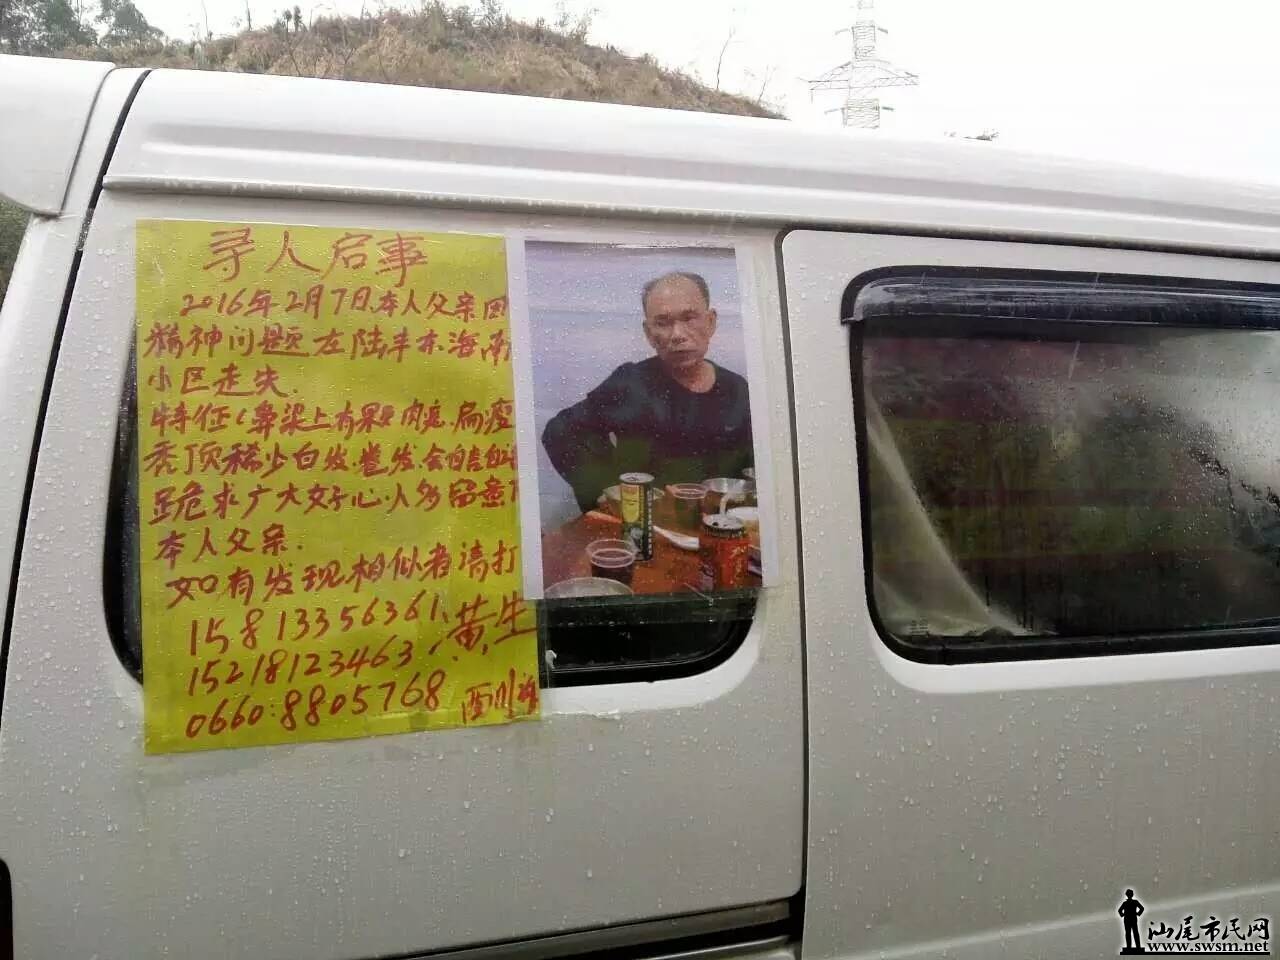 寻人启事
2016年2月7日.本人父亲因
精神问题在陆丰东海南
小区走失.
特征:鼻梁上有颗肉痣.扁瘦
秃顶稀少白发.卷发.会自言自
跪求广大好心人多留意
本人父亲.
如有发现相似者请打
15813356361.黄生
15218123463
0660:8805768
汕尾市民网
www.swsm.net